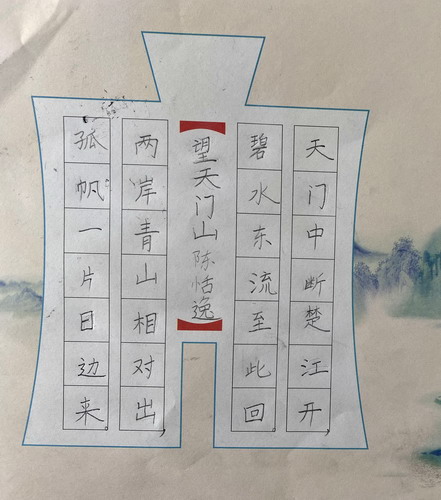 天门中断楚江开,
碧水东流至此回.
望天门山 陈恬逸
两岸青山相对出,
孤帆一片日边来。